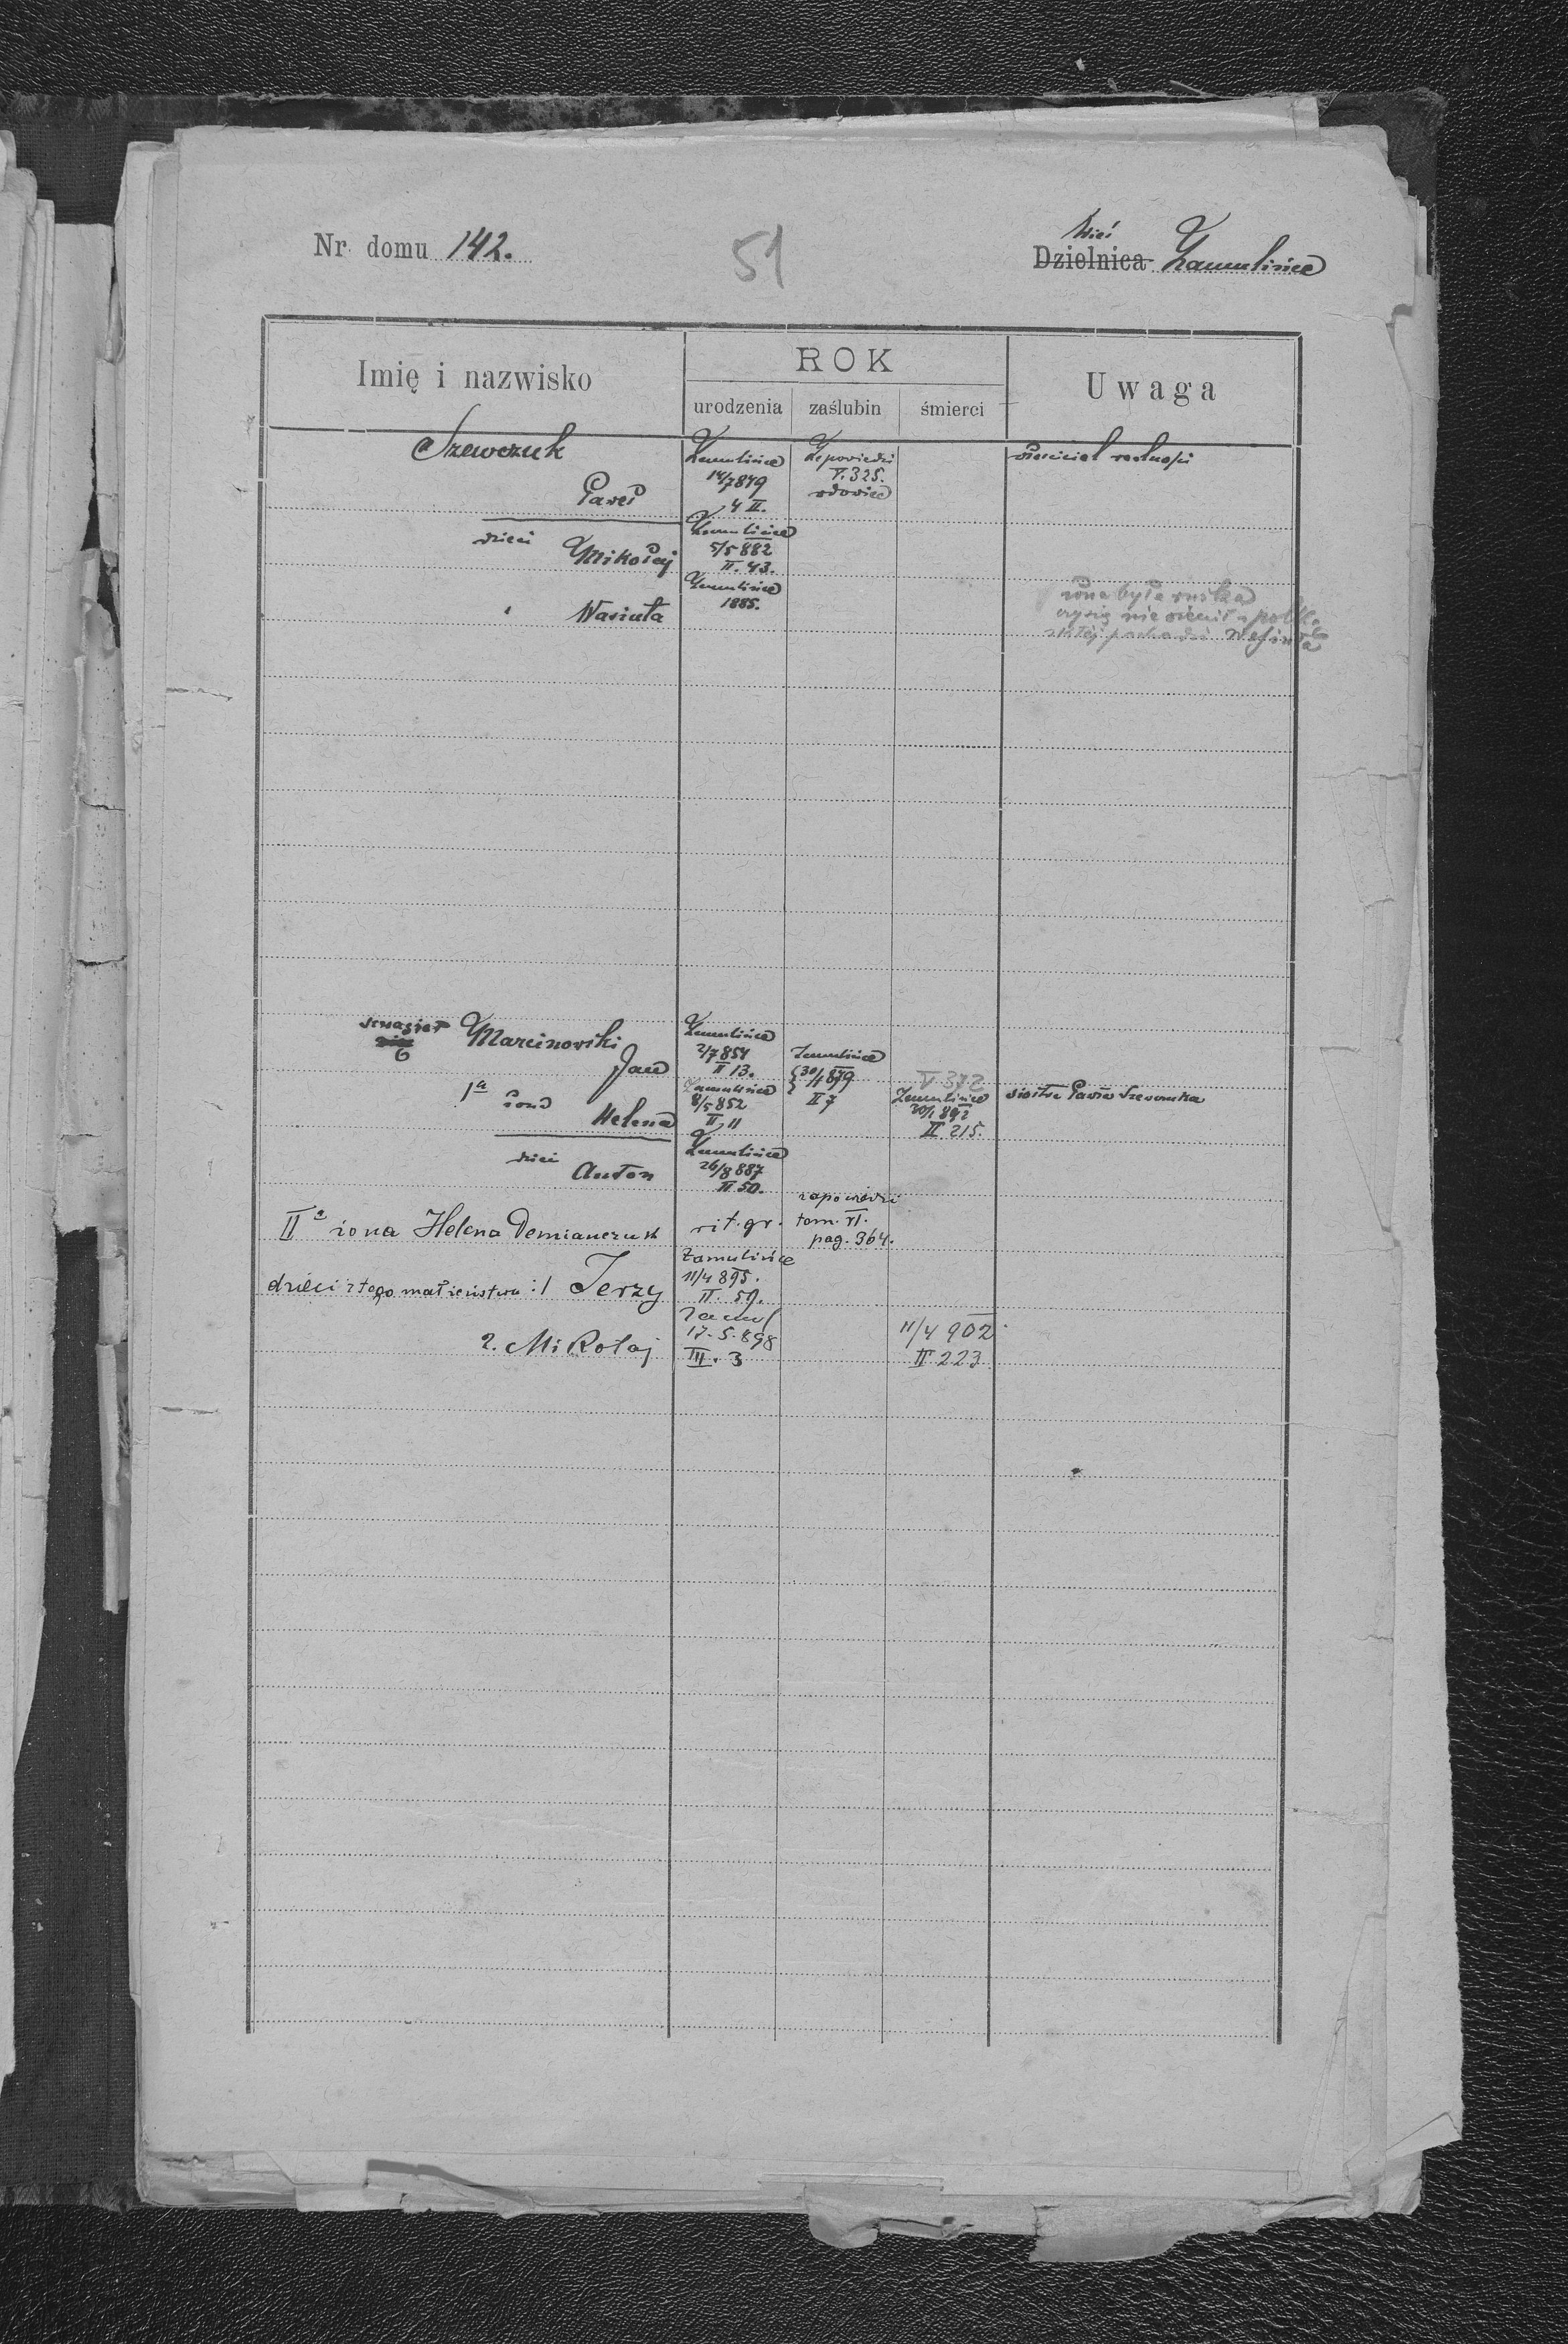 Nr domu 142.
51
Wieś
Dzielnica Zamulińce
Imię i nazwisko
ROK
urodzenia zaślubin śmierci
Uwaga
Szewczuk
Paweł
Zamulińce
14/7 849
4 II.
Zapowiedzi
V. 325.
wdowiec
właściciel realności
dzieci Mikołaj
Zamulińce
5/5 882
II. 43.
" Wasiuta
Zamulińce
1885.
żona była ruska
czy się nie żenił z polk.
z której pochodzi Wasiuta
szwagier Marcinowski
Jan
Zamulińce
2/7 854
II 13.
Zamulińce
30/4 879
II 7
1a żona Helena
Zamulińce
8/5 852
II 11
V 372
Zamulińce
20/1 892
II 215.
siostra Pawła Szewczuka
dzieci Anton
Zamulińce
26/8 887
II. 50.
IIa żona Helena Demianczuk
rit. gr.
zapowiedzi
tom. VI.
pag. 364.
dzieci z tego małżeństwa: 1 Jerzy
Zamulińce
11/4 895.
II. 59.
2. Mikołaj
Zamul
17-5-898
III. 3
11/4 902
II 223